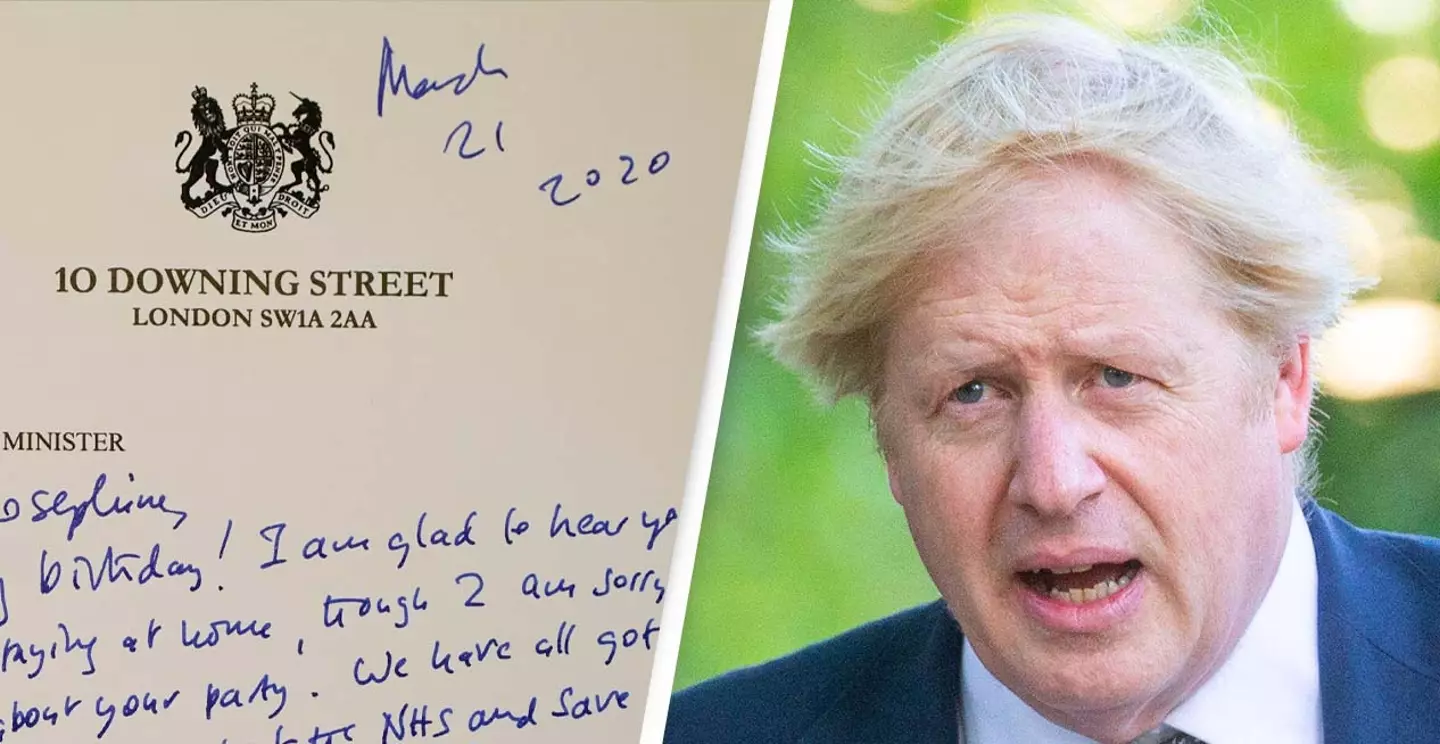 March
21
2020
HONI SOIT QUI MAL Y PENSE
DIEU ET MON DROIT
10 DOWNING STREET
LONDON SW1A 2AA
MINISTER
osephine,
birthday! I am glad to hear yo
taying at home, though I am sorry
about your party. We have all got
NHS and save